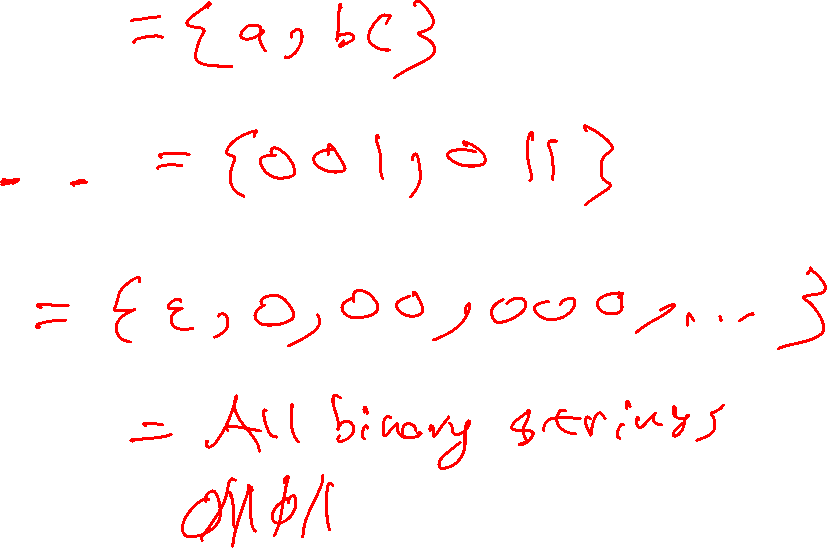 = {a, bc}
= {001, 011}
= {ε, 0, 00, 000, ... }
= All binary strings